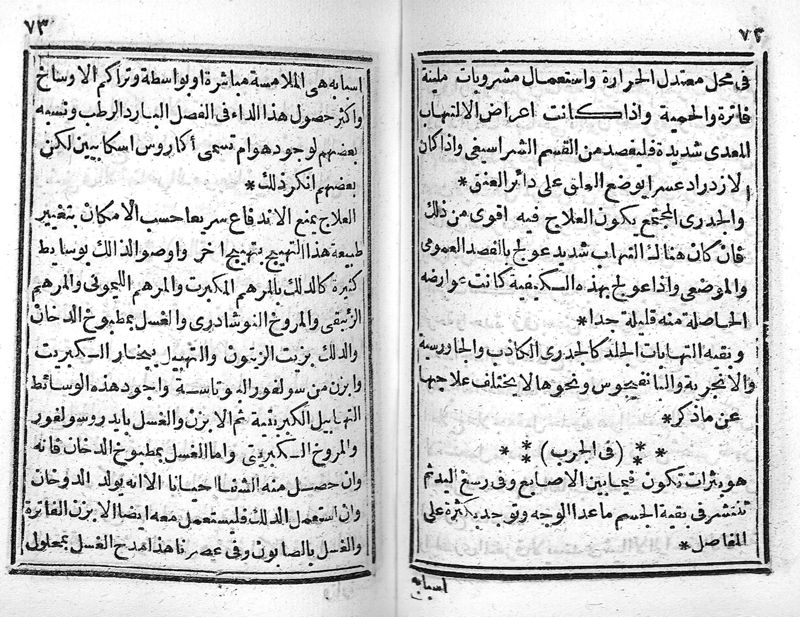 ٧٢
في محل معتدل الحرارة واستعمال مشروبات ملينة
فاترة والحمية واذا كانت اعراض الالتهاب
المعدي شديدة فليفصد من القسم الشراسيفي واذا كان
الازدراد عسرا يوضع العلق على دائر العنق *
والجدري المجتمع يكون العلاج فيه اقوى من ذلك
فان كان هناك التهاب شديد عولج بالفصد العمومي
والموضعي واذا عولج بهذه الكيفية كانت عوارضه
الحاصلة منه قليلة جدا *
وبقية التهابات الجلد كالجدري الكاذب والجاورسية
والانجرية والبانفيجوس ونحوها لا يختلف علاجها
عن ماذكر *
* * * (في الجرب) * * *
هو بثرات تكون فيما بين الاصابع وفي رسغ اليد ثم
تنتشر في بقية الجسم ماعدا الوجه وتوجد بكثرة على
المفاصل *
اسبابه
٧٣
اسبابه هي الملامسة مباشرة او بواسطة وتراكم الاوساخ
واكثر حصول هذا الداء في الفصل البارد الرطب ونسبه
بعضهم لوجود هوام تسمى أكاروس اسكابيين لكن
بعضهم انكر ذلك *
العلاج يمنع الاندفاع سريعا حسب الامكان بتغيير
طبيعة هذا التهييج بتهييج اخر واوصوا لذلك بوسايط
كثيرة كالدلك بالمرهم المكبرت والمرهم الليموني والمرهم
الزئبقي والمروخ النوشادري والغسل بمطبوخ الدخان
والدلك بزيت الزيتون والتهبيل ببخار الكبريت
وابزن من سولفور البوتاسة واجود هذه الوسائط
التهابيل الكبريتية ثم الابزن والغسل بايدروسولفور
والمروخ الكبريتي واما الغسل بمطبوخ الدخان فانه
وان حصل منه الشفا احيانا الا انه يولد الدوخان
وان استعمل الدلك فليستعمل معه ايضا الابزن الفاترة
والغسل بالصابون وفي عصرنا هذا مدح الغسل بمحلول